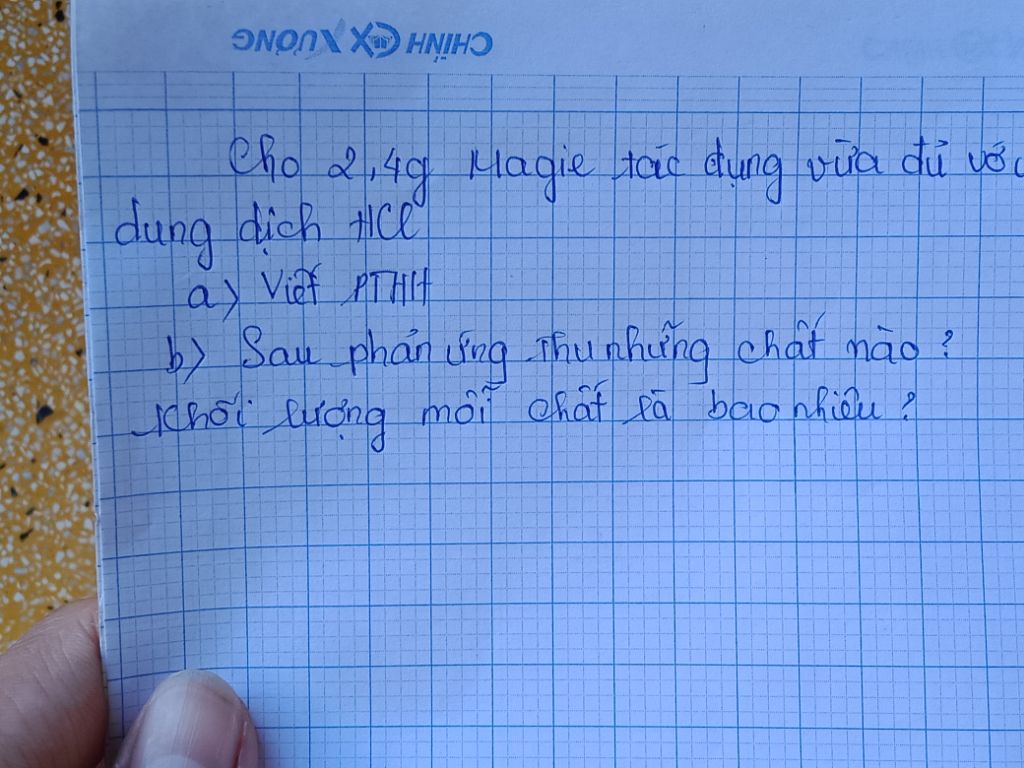 CHÍNH XƯƠNG
Cho 2,4g Magie tác dụng vừa đủ với
dung dịch HCl
a) Viết PTHH
b) Sau phản ứng thu những chất nào?
Khối lượng mỗi chất là bao nhiêu?